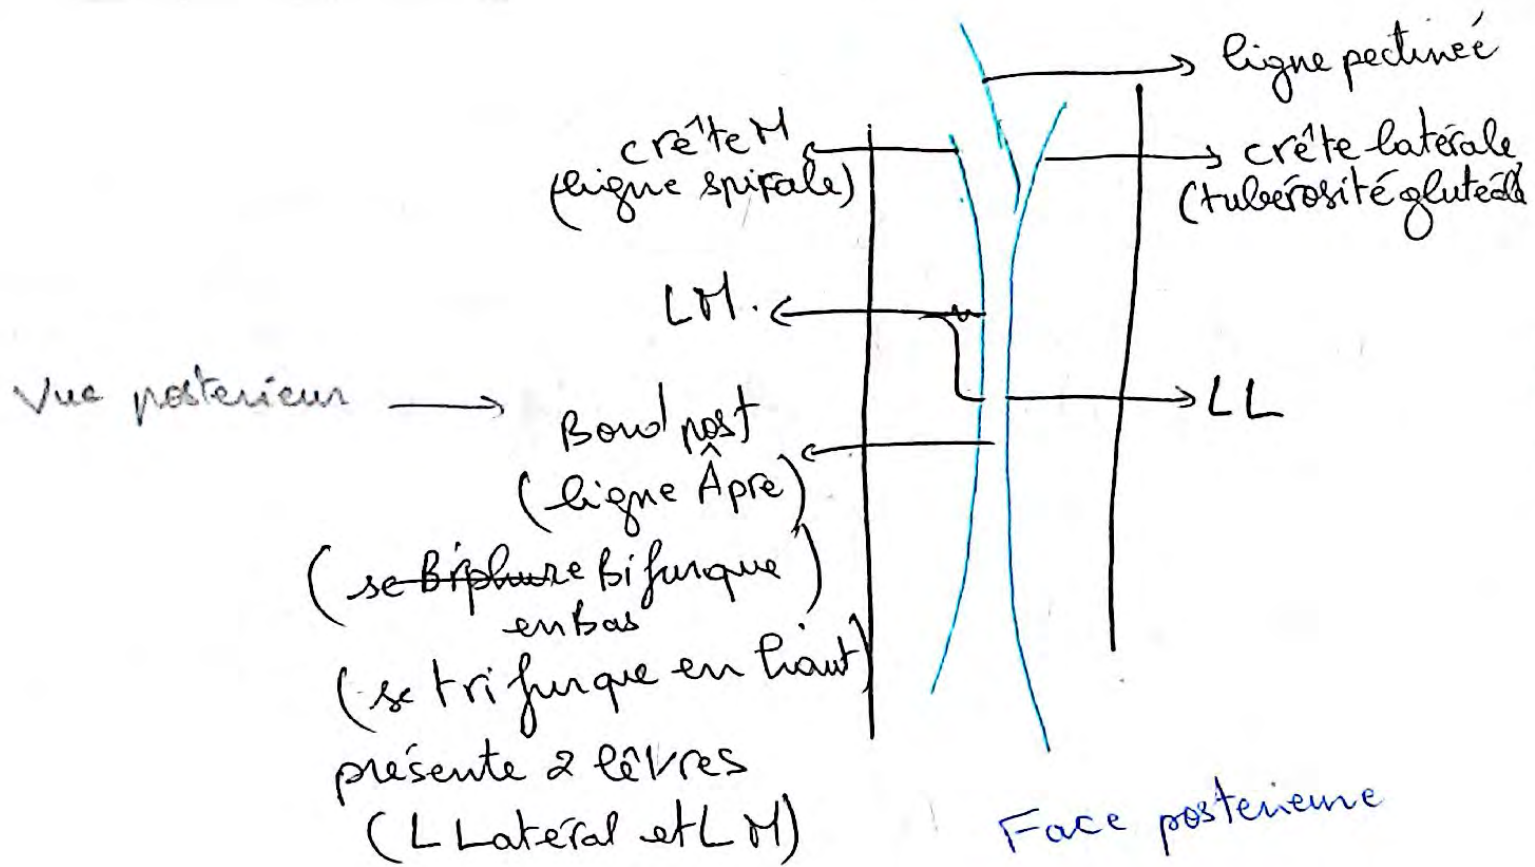 ligne pectineé
crête M
(ligne spirale)
crête latérale
(tubérosité glutéale
LM.
Vue posterieur
LL
Bord post
(ligne Âpre)
(se Bifurque)
en Bas
(se trifurque en haut)
présente 2 lêvres
(L Latéral et LM)
Face posterieure